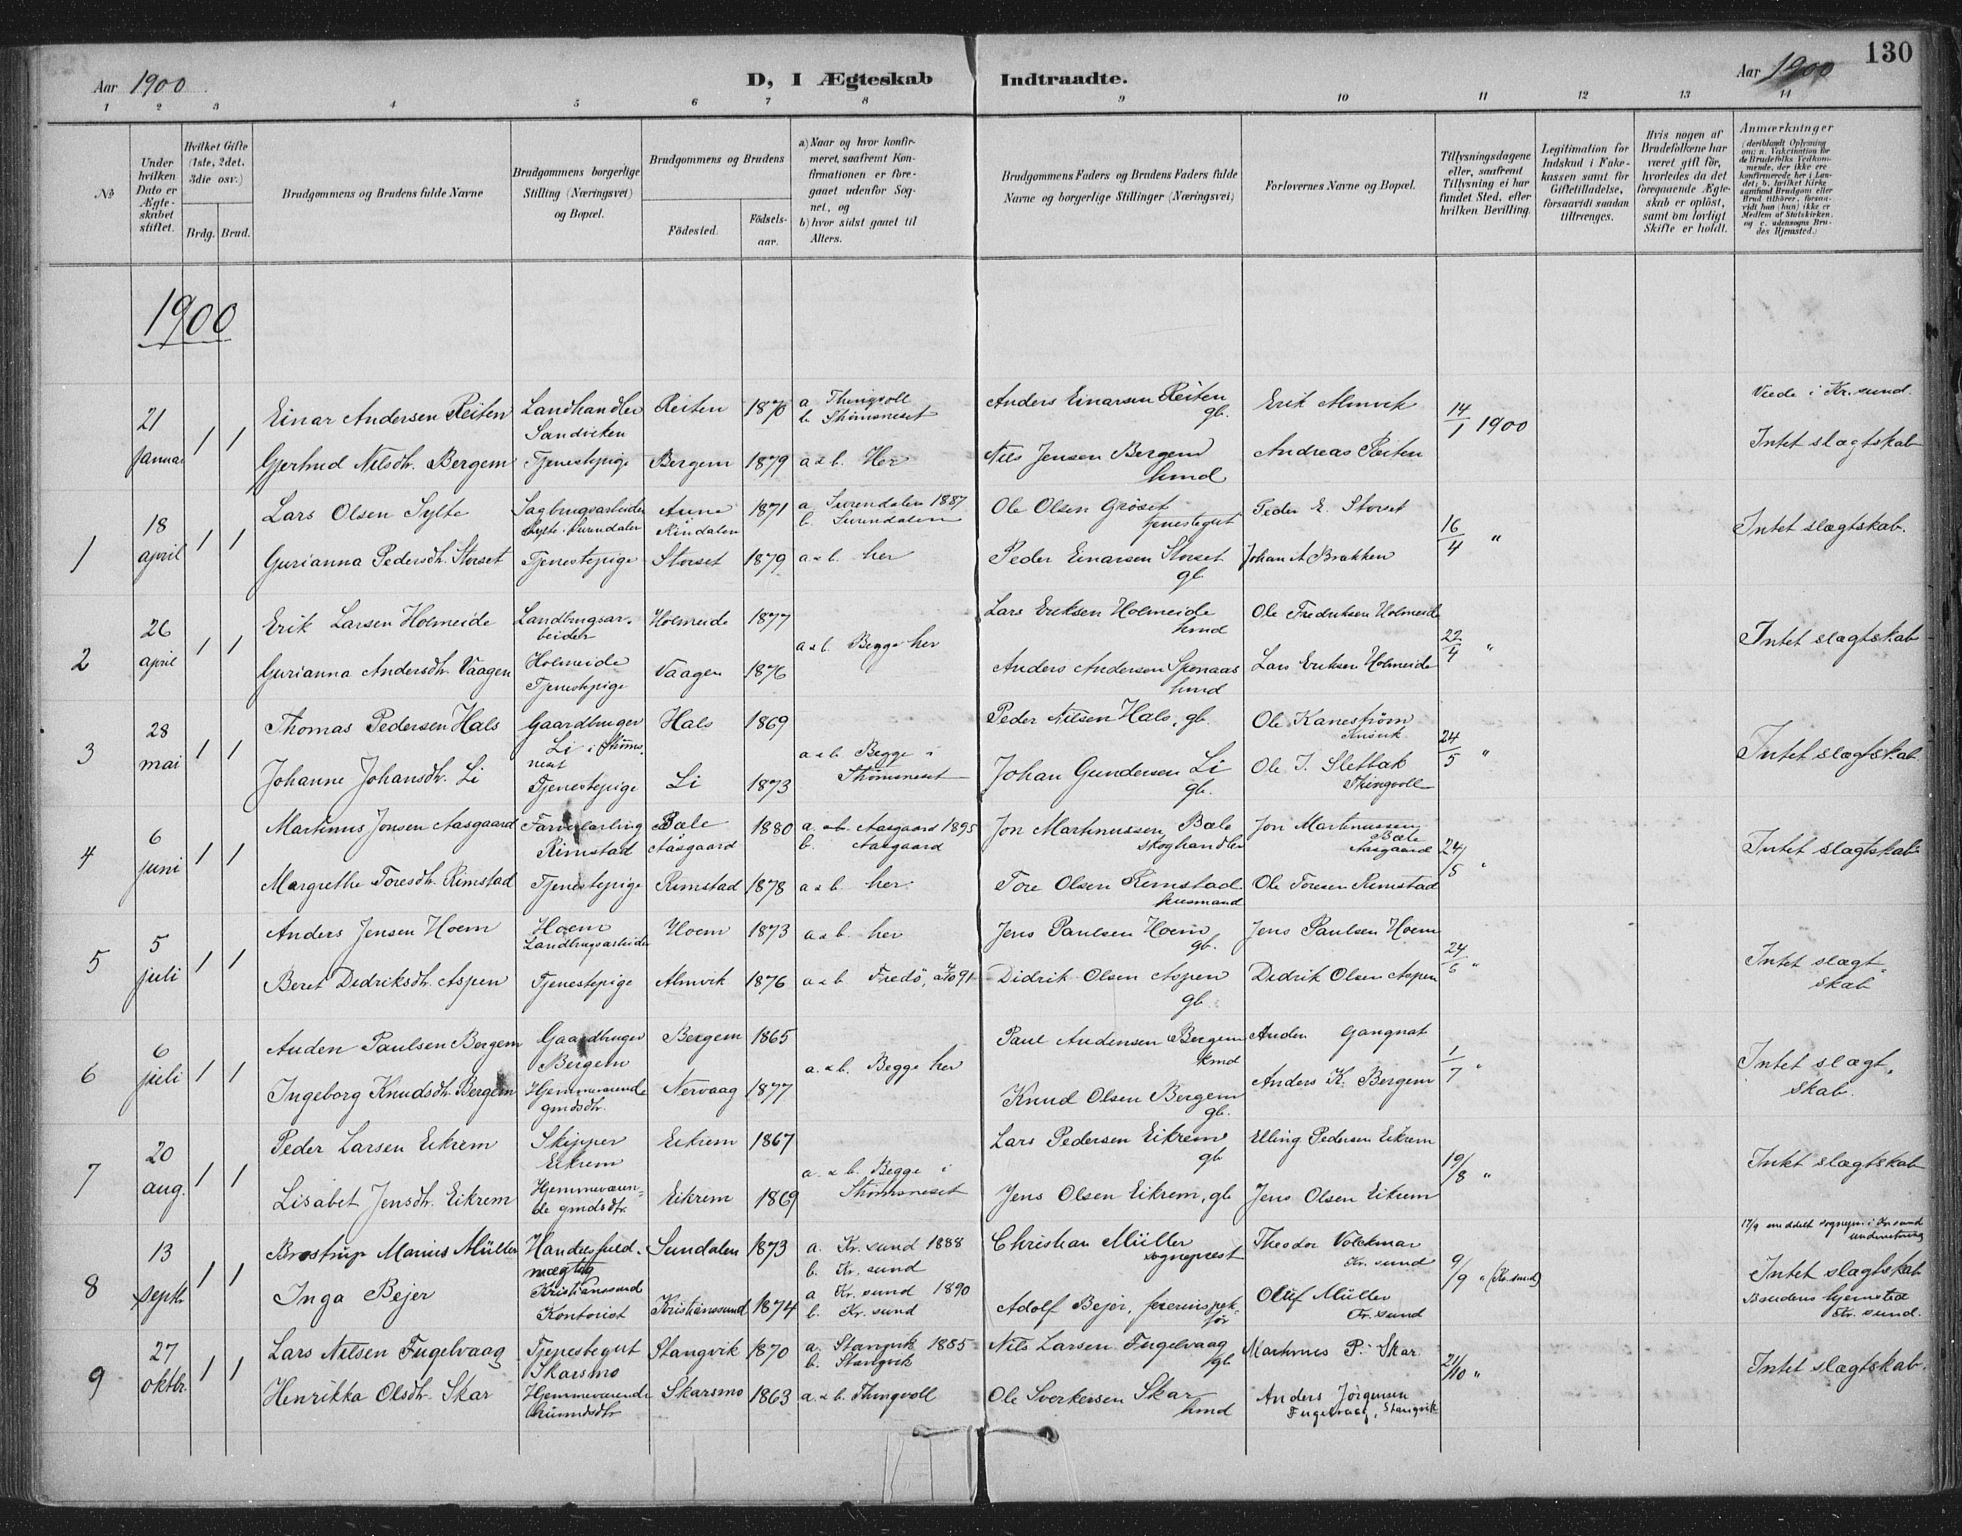 130
Aar 1900
D, I Ægteskab Indtraadte.
Aar 1900
1 2 3 4 5 6 7 8 9 10 11 12 13 14
№
Under hvilken Dato er Ægteskabet stiftet.
Hvilket Gifte (1ste, 2det, 3die osv.)
Brdg. Brud.
Brudgommens og Brudens fulde Navne
Brudgommens borgerlige Stilling (Næringsvei) og Bopæl.
Brudgommens og Brudens
Fødested. Fødselsaar.
a) Naar og hvor konfirmeret, saafremt Konfirmationen er foregaaet udenfor Sognet, og
b) hvor sidst gaaet til Alters.
Brudgommens Faders og Brudens Faders fulde Navne og borgerlige Stillinger (Næringsvei)
Forlovernes Navne og Bopæl.
Tillysningsdagene eller, saafremt Tillysning ei har fundet Sted, efter hvilken Bevilling.
Legitimation for Indskud i Enkekassen samt for Giftetilladelse, forsaavidt saadan tiltrænges.
Hvis nogen af Brudefolkene har været gift før, hvorledes da det foregaaende Ægteskab er opløst, samt om lovligt Skifte er holdt.
Anmærkninger (deriblandt Oplysning om: a. Vakcination for de Brudefolks Vedkommende, der ikke ere konfirmerede her i Landet; b. hvilket Kirkesamfund Brudgom eller Brud tilhører, forsaavidt han (hun) ikke er Medlem af Statskirken, og c. udensogns Brudes Hjemsted.)
1900
21 januar 1 1
Einar Andersen Reiten Landhandler Sandviken Reiten 1870 a Thingvoll b. Strømsneset Anders Einarsen Reiten gb. Erik Almvik 14/1 1900 Viede i Kr.sund.
Gjertrud Nilsdtr. Bergem Tjenestepige Bergem 1879 a & b. Her Nils Jensen Bergem hmd Andreas Reiten Intet slægtskab
1 18 april 1 1
Lars Olsen Sylte Sagbrugsarbeider Sylte Surendalen Aune Rindalen 1871 a Surendalen 1887 b. Surendalen Ole Olsen Grøset tjenestegut Peder E. Storset 16/4 " Intet slægtskab.
Gurianna Pedersdtr. Storset Tjenestepige Storset 1879 a & b. her Peder Einarsen Storset gb. Johan A Brækken
2 26 april 1 1
Erik Larsen Holmeide Landbrugsarbeider Holmeide Holmeide 1877 a & b. Begge her Lars Eriksen Holmeide hmd Ole Fredriksen Holmeide 22/4 " Intet slægtskab
Gurianna Andersdtr. Vaagen Tjenestepige Vaagen 1876 Anders Andersen hmd Lars Eriksen Holmeide
3 28 mai 1 1
Thomas Pedersen Hals Gaardbruger Li i Strømsneset Hals 1869 a & b. Begge i Strømsneset Peder Nilsen Hals, gb. Ole Kanestrøm 24/5 " Intet slægtskab
Johanne Johansdtr. Li Tjenestepige Li 1873 Johan Gundersen Li gb. Ole J. Slettak Thingvoll
4 6 juni 1 1
Martinus Jonsen Aasgaard Farverlærling Rimstad Bæle Aasgaard 1880 a. Aasgaard 1895 b. Aasgaard Jon Martinussen Bæle skoghandler Jon Martinussen Bæle Aasgaard 24/5 " Intet slægtskab
Margrethe Toresdtr. Rimstad Tjenestepige Rimstad 1878 a & b. her. Tore Olsen Rimstad husmand Ole Toresen Rimstad
5 5 juli 1 1
Anders Jensen Hoem Hoem Landbrugsarbeider Hoem 1873 a & b. her Jens Paulsen Hoem gb. Jens Paulsen Hoem 24/6 " Intet slægtskab
Beret Didriksdtr. Aspen Tjenestepige Almvik 1876 a & b. Fredø, 4/10 91 Didrik Olsen Aspen gb. Didrik Olsen Aspen
6 6 juli 1 1
Anden Paulsen Bergem Gaardbruger Bergem Bergem 1865 a. & b. Begge her Paul Andensen Bergem kmd Anden Gangnat 1/7 " Intet slægtskab.
Ingeborg Knudsdtr. Bergem Hjemmeværende gmdsdtr. Nervaag 1877 Knud Olsen Bergem gb. Anders K. Bergem
7 20 aug. 1 1
Peder Larsen Eikrem Skipper Eikrem Eikrem 1867 a. & b. Begge i Strømsneset Lars Pedersen Eikrem gb Elling Pedersen Eikrem 19/8 " Intet slægtskab
Lisabet Jensdtr. Eikrem Hjemmeværende gmdsdtr. Eikrem 1869 Jens Olsen Eikrem, gb Jens Olsen Eikrem
8 13 septbr 1 1
Brostrup Marius Müller Handelsfuldmægtig Kristianssund Sundalen 1873 a. Kr.sund 1888 b. Kr.sund Christian Müller sogneprest Theodor Volckmar Kr.sund 9/9 " (Kr.sund) 17/9 meddelt sognepr. i Kr.sund underretning
Inga Bejer Kontorist Kristianssund 1874 a Kr.sund 1890 b. Kr.sund Adolf Bejer, Oluf Müller Kr.sund Intet slægtskab Brudens hjemsted Kr.sund.
9 27 oktbr. 1 1
Lars Nilsen Fugelvaag Tjenestegut Skarsmo Stangvik 1870 a. Stangvik 1885 b. Stangvik Nils Larsen Fugelvaag gb Martinus P. Skar 21/10 " Intet slægtskab.
Henrikka Olsdtr. Skar Hjemmeværende Skarsmo 1863 a. & b. Thingvoll Ole Sverkersen Skar hmd Anders Jørgensen Fugelvaag, Stangvik